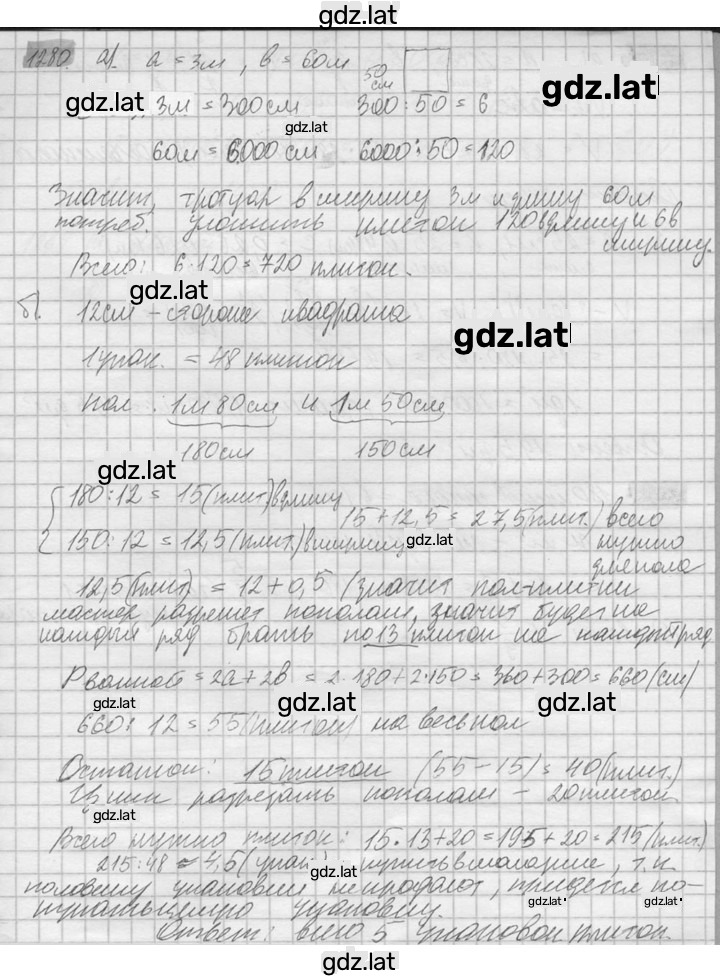 gdz.lat
1280. а). a = 3м, в = 60м
50 см
gdz.lat
gdz.lat 3м = 300см 300 : 50 = 6
gdz.lat
60м = 6000 см 6000 : 50 = 120
Значит, тротуар в ширину 3м и длину 60м
потреб. уложить плиток 120 в длину и 6 в
ширину.
Всего: 6·120 = 720 плиток.
gdz.lat
б). 12см – сторона квадрата
gdz.lat
1 упак. = 48 плиток
пол : 1м 80см и 1м 50см
180см 150см
gdz.lat
180 : 12 = 15 (плит.) в длину
15 + 12,5 = 27,5 (плит.) всего
150 : 12 = 12,5 (плит.) в ширину gdz.lat нужно
для пола
12,5 (плит.) = 12 + 0,5 (значит пол-плитки
мастер разрежет пополам, значит будет на
каждый ряд брать по 13 плиток на каждый ряд
P ванной = 2a + 2в = 2·180 + 2·150 = 360 + 300 = 660 (см)
gdz.lat gdz.lat gdz.lat
660 : 12 = 55 (плиток) на весь пол
Остаток: 15 плиток (55 – 15) = 40 (плит.)
разрезать пополам – 20 плиток
gdz.lat
Всего нужно плиток: 15·13 + 20 = 195 + 20 = 215 (плит.)
215 : 48 ≈ 4,5 (упак.) gdz.lat купить в магазине, т.к.
половину упаковки не продают, придется по-
gdz.lat gdz.lat
купать целую упаковку.
Ответ: всего 5 упаковок плиток
gdz.lat